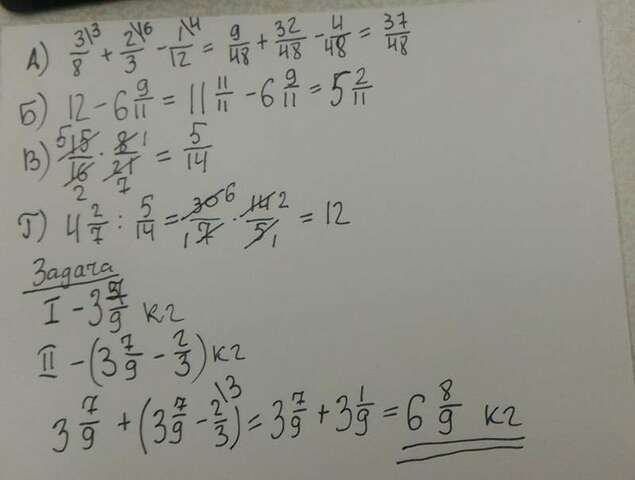 А) 3\3/8 + 2\16/3 - 1\4/12 = 9/48 + 32/48 - 4/48 = 37/48
Б) 12 - 6 9/11 = 11 11/11 - 6 9/11 = 5 2/11
В) 5 15/16 2 · 8 1/21 7 = 5/14
Г) 4 2/7 : 5/14 = 30 6/1 7 · 14 2/5 1 = 12
Задача
I - 3 7/9 кг
II - (3 7/9 - 2/3) кг
3 7/9 + (3 7/9 - 2\3/3) = 3 7/9 + 3 1/9 = 6 8/9 кг